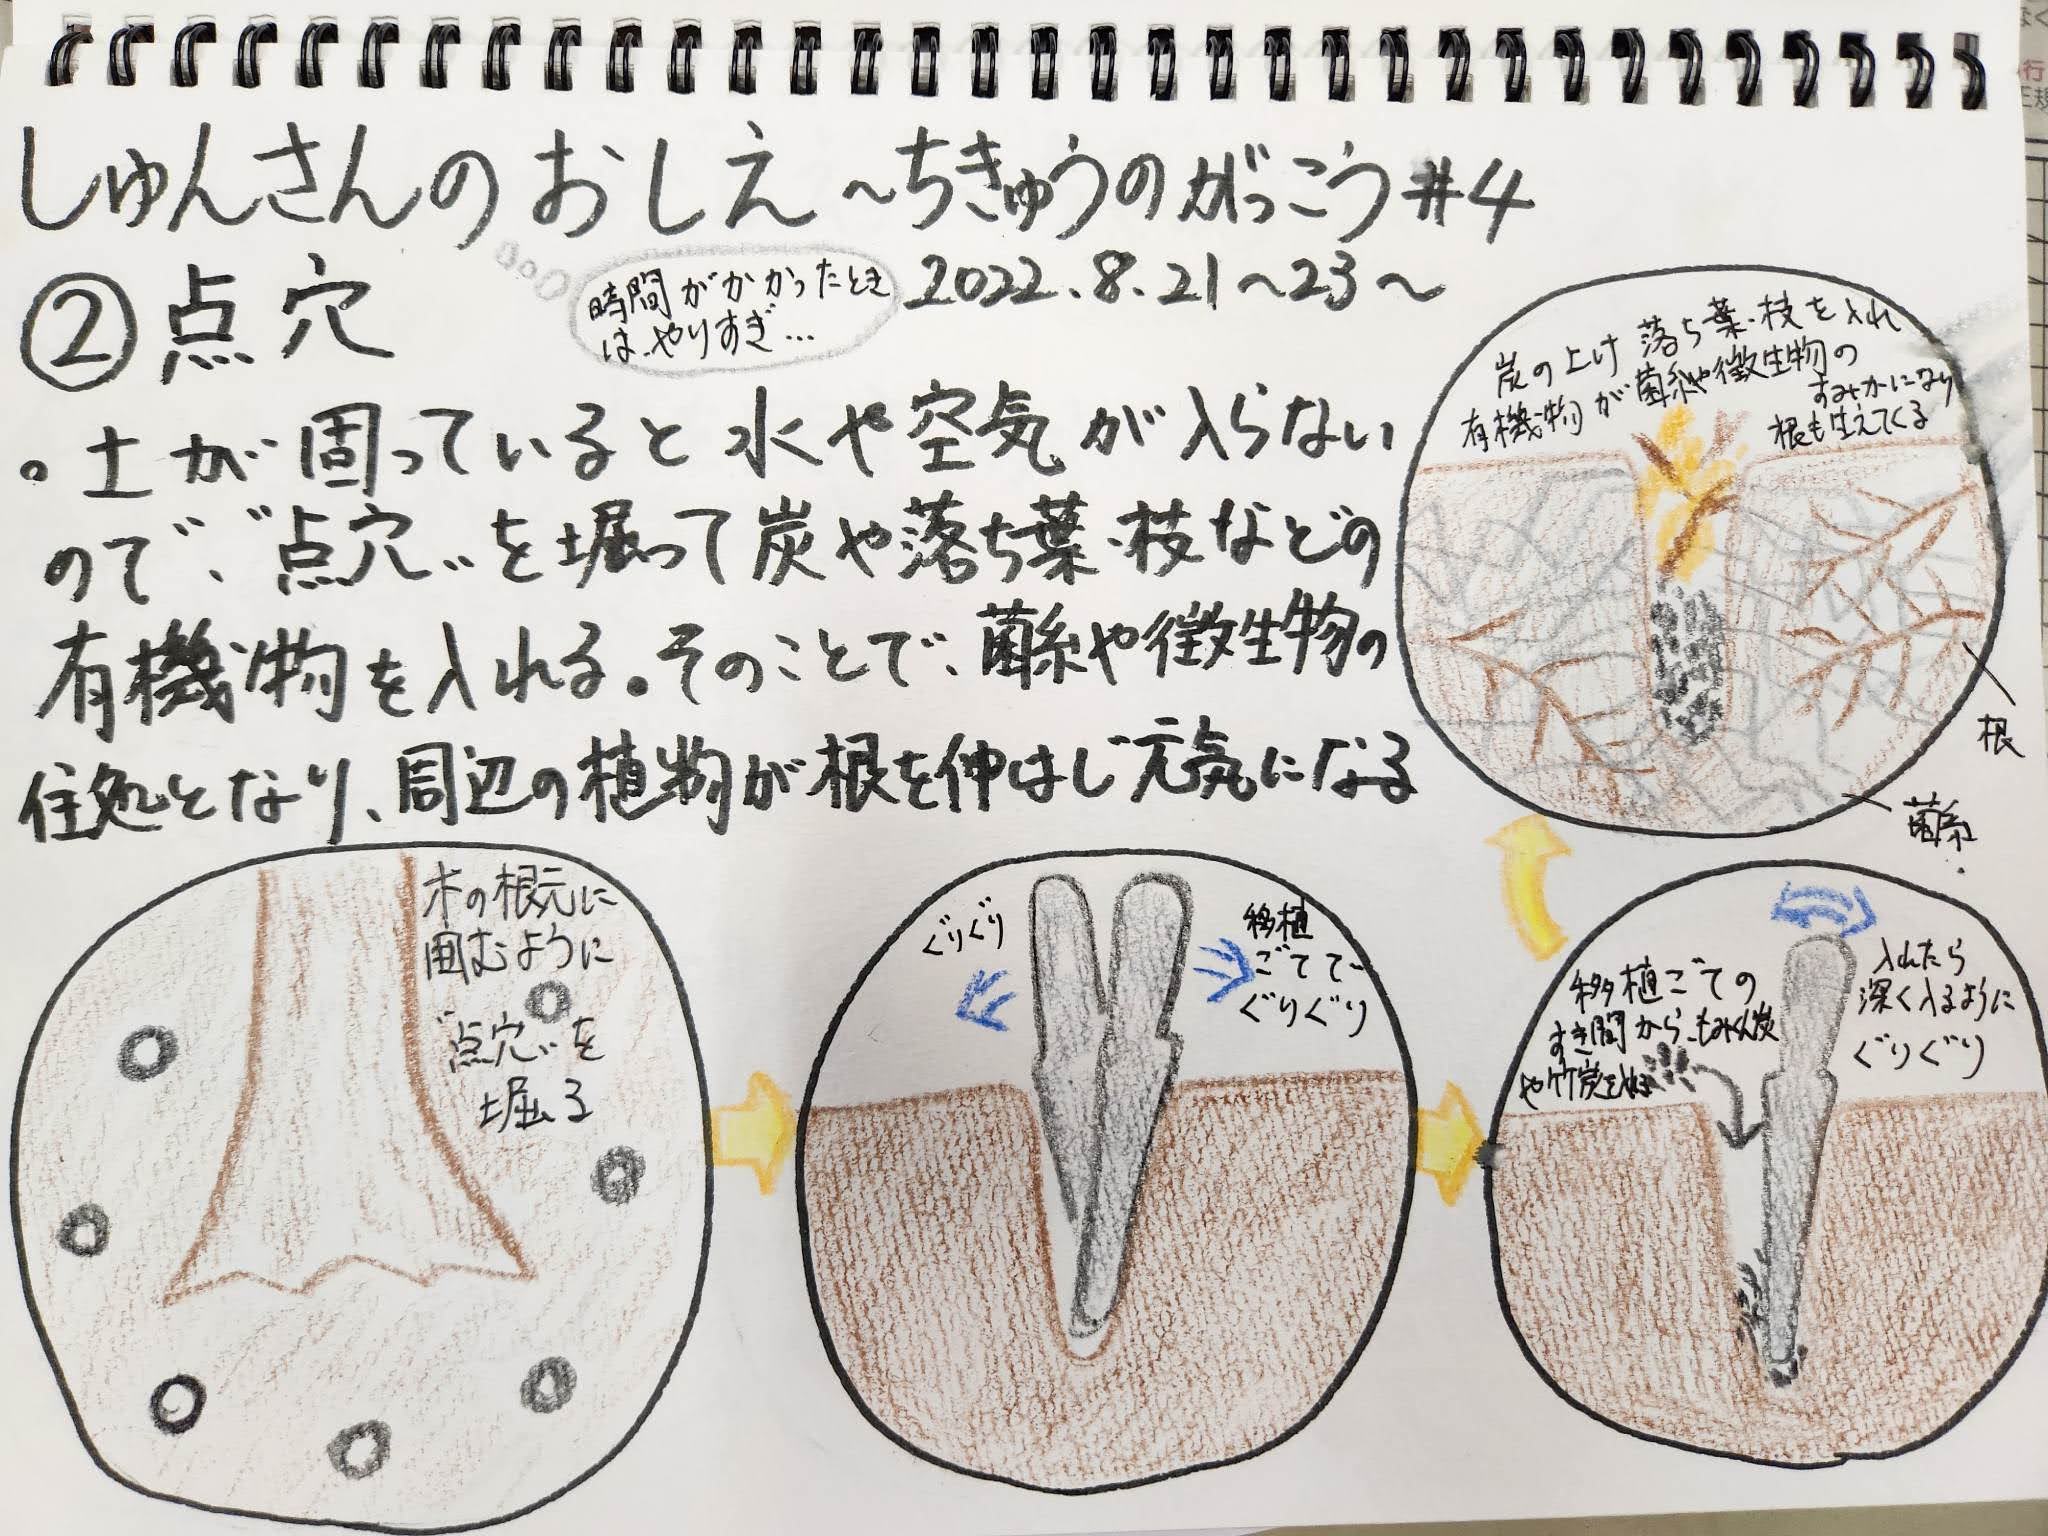 しゅんさんのおしえ 〜ちきゅうのがっこう#4
2022.8.21〜23〜
時間がかかったとき
は、やりすぎ…
② 点穴
。土が固っていると水や空気が入らない
ので、"点穴"を掘って炭や落ち葉・枝などの
有機物を入れる。そのことで、菌糸や微生物の
住処となり、周辺の植物が根を伸ばし元気になる
炭の上け 落ち葉・枝を入れ
有機物が菌糸や微生物の
すみかになり
根も生えてくる
根
菌糸
木の根元に
囲むように
"点穴"を
掘る
ぐりぐり
移植
ごてで
ぐりぐり
移植ごての
すき間から、もみくん炭
や竹炭を
入れたら
深く入るように
ぐりぐり